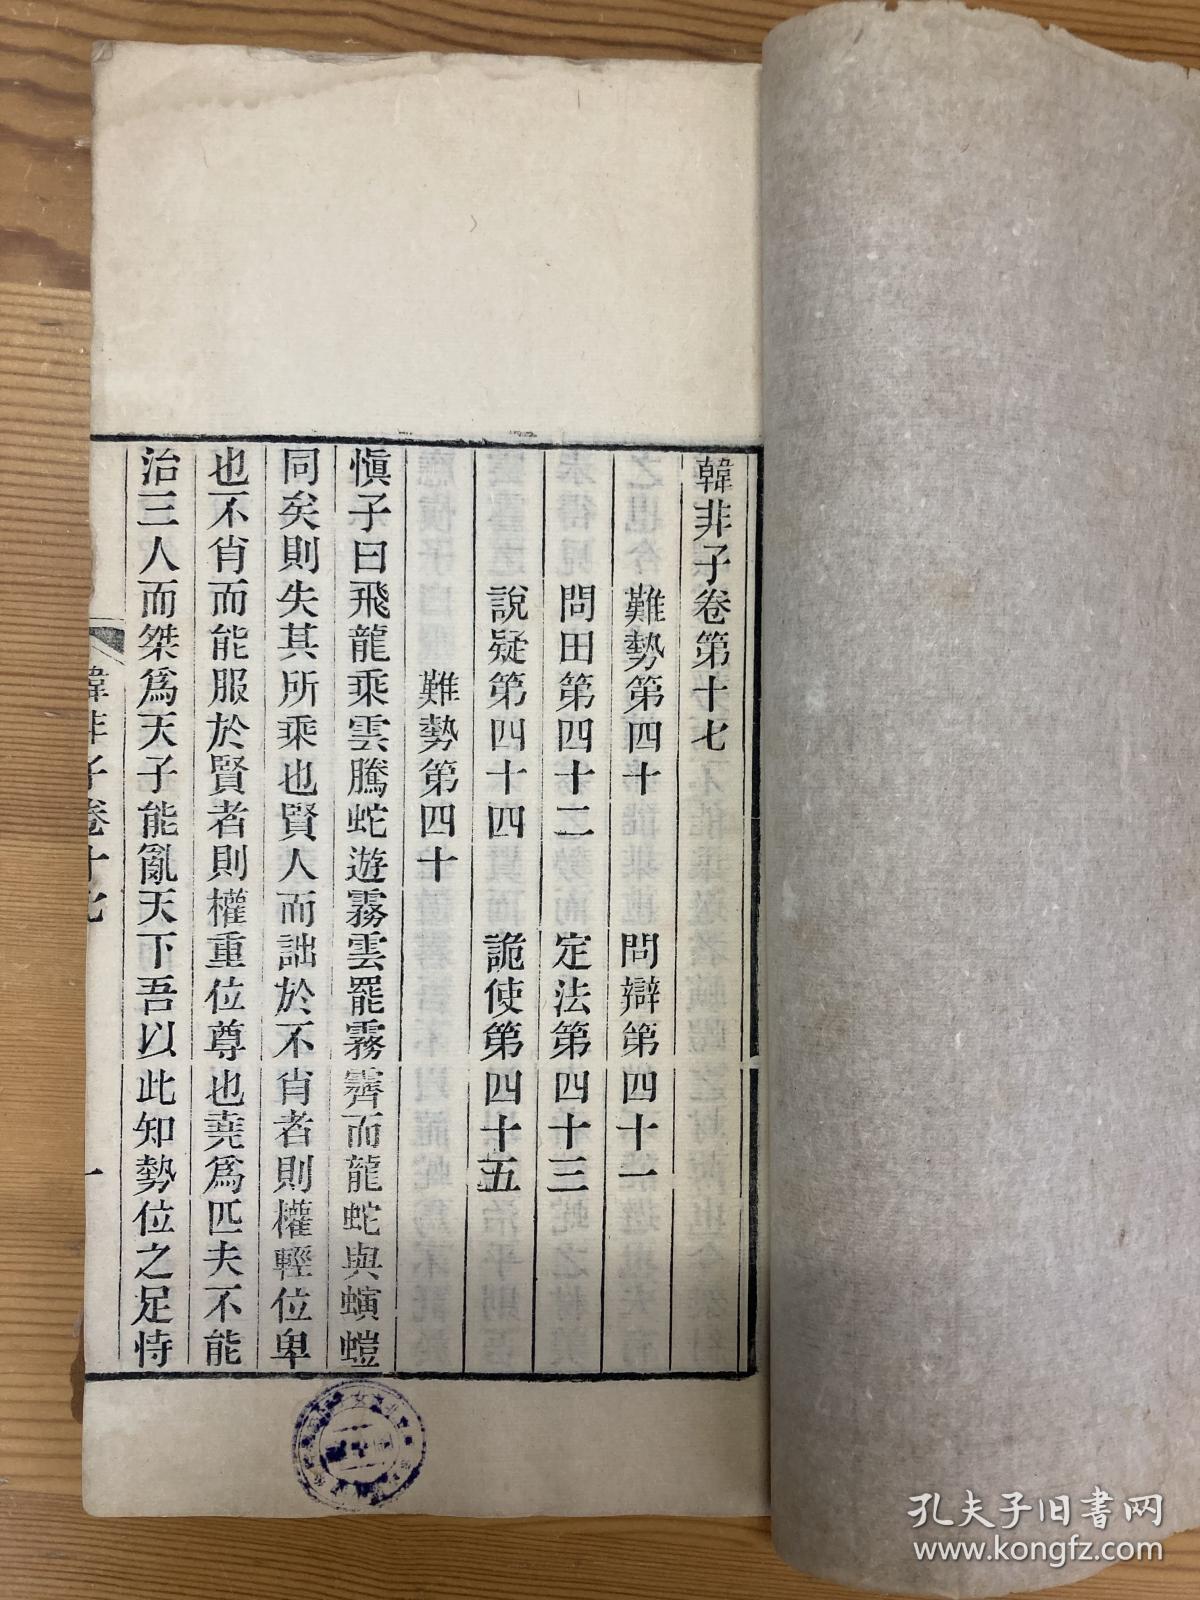 韓非子卷第十七
難勢第四十　問辯第四十一
問田第四十二　定法第四十三
說疑第四十四　詭使第四十五
難勢第四十
愼子曰飛龍乘雲騰蛇遊霧雲罷霧霽而龍蛇與螾螘
同矣則失其所乘也賢人而詘於不肖者則權輕位卑
也不肖而能服於賢者則權重位尊也堯爲匹夫不能
治三人而桀爲天子能亂天下吾以此知勢位之足恃
韓非子卷十七　一
孔夫子旧书网
www.kongfz.com